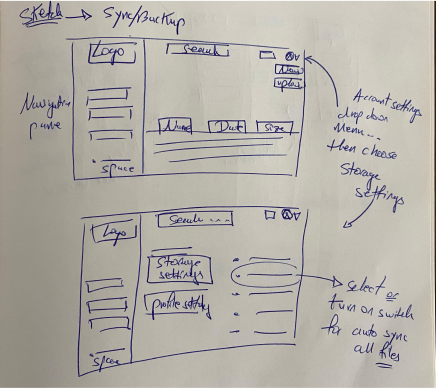 Sketch → Sync/Backup
Logo
Search
New
upload
Navigation
pane
Name
Date
Size
space
Account settings
drop down
Menu...
then choose
Storage
settings
Logo
Search ...
Storage
settings
profile setting
space
select or
turn on switch
for auto sync
all files